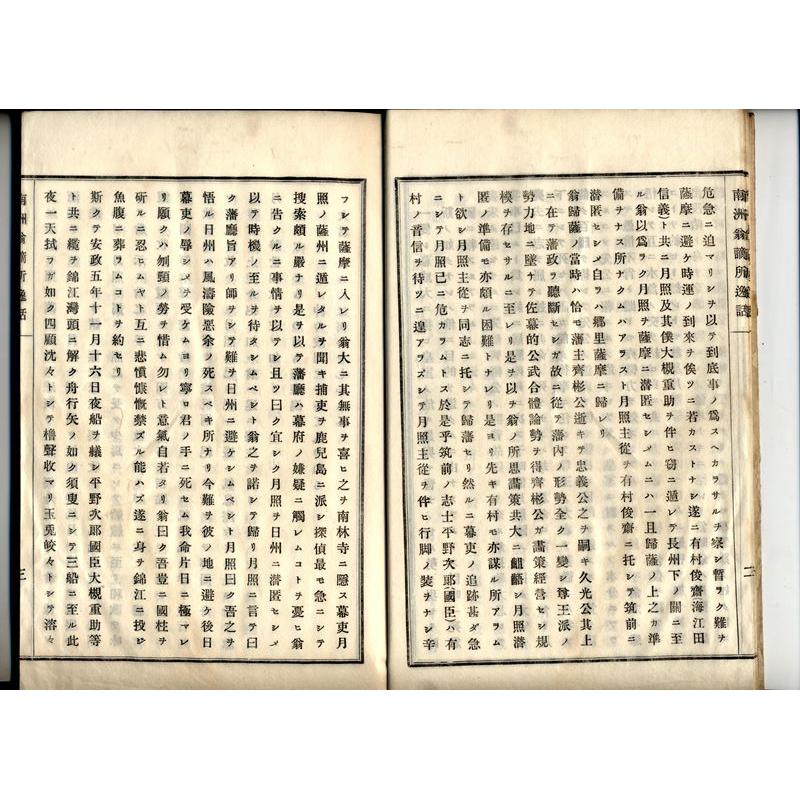 南洲翁謫所逸話
二
危急ニ迫マリシヲ以テ到底事ノ爲スヘカラサルヲ察シ暫ヲク難ヲ
薩摩ニ避ケ時運ノ到來ヲ俟ツニ若カストナシ遂ニ有村俊齋海江田
信義)ト共ニ月照及其僕大槻重助ヲ伴ヒ窃ニ遁レテ長州下ノ關ニ至
ル翁以爲ラク月照ヲ薩摩ニ潜匿セシメムニハ一旦歸薩ノ上之カ準
備ヲナス所ナクムハアラスト月照主從ヲ有村俊齋ニ托シテ筑前ニ
潜匿セシメ自ラハ郷里薩摩ニ歸レリ
翁歸薩ノ當時ハ恰モ藩主齊彬公逝キ忠義公之ヲ嗣キ久光公其上
ニ在テ藩政ヲ聽斷セシガ故ニ從テ藩内ノ形勢全ク一變シ尊王派ノ
勢力地ニ墜ナテ佐幕的公武合體論勢ヲ得齊彬公ガ畵策經營セシ規
模ヲ存セサルニ至レリ是ヲ以テ翁ノ所思畵策共大ニ齟齬シ月照潜
匿ノ準備モ亦頗ル困難トナレリ是ヨリ先キ有村モ亦謀ル所アラム
ト欲シ月照主從ヲ同志ニ托シテ歸藩セリ然ルニ幕吏ノ追跡甚ダ急
ニシテ月照已ニ危カラムトス於是乎筑前ノ志士平野次郎國臣)ハ有
村ノ音信ヲ待ツニ遑アラズシテ月照主從ヲ伴ヒ行脚ノ装ヲナシ辛
フシテ薩摩ニ入レリ翁大ニ其無事ヲ喜ヒ之ヲ南林寺ニ隱ス幕吏月
照ノ薩州ニ遁レタルヲ聞キ捕吏ヲ鹿兒島ニ派シ探偵最モ急ニシテ
搜索頗ル嚴ナリ是ヲ以テ藩廳ハ幕府ノ嫌疑ニ觸レムコトヲ憂ヒ翁
ニ告クルニ事情ヲ以テシ且ツ曰ク宜シク月照ヲ日州ニ潜匿セシメ
以テ時機ノ至ルヲ待タシムベシト翁之ヲ諾シテ歸リ月照ニ言テ曰
ク藩廳旨アリ師ヲシテ難ヲ日州ニ避ケシムベシト月照曰ク吾之ヲ
悟ル日州ハ風濤險惡余ノ死スベキ所ナリ今難ヲ彼ノ地ニ避ケ後日
幕吏ノ辱シメヲ受ケムヨリ寧ロ君ノ手ニ死セム我命片日ニ極マレ
リ願クハ刎頸ノ勞ヲ惜ム勿レト意氣自若タリ翁曰ク吾豈ニ國柱ヲ
斫ルニ忍ヒムヤト互ニ悲憤慷慨禁ズル能ハズ遂ニ身ヲ錦江ニ投シ
魚腹ニ葬ラムコトヲ約セリ
斯クテ安政五年十一月十六日夜船ヲ艤シ平野次郎國臣大槻重助等
ト共ニ纜ヲ錦江灣頭ニ解ク舟行矢ノ如ク須臾ニシテ三船ニ至ル此
夜一天拭フガ如ク四顧沈々トシテ櫓聲收マリ玉兎皎々トシテ溶々
南洲翁謫所逸話
三